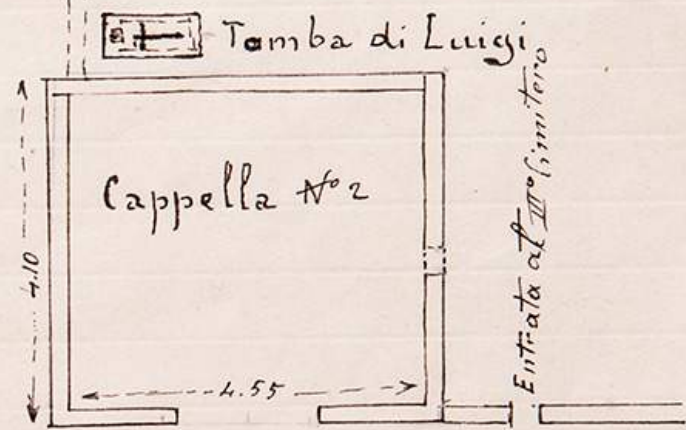 Tomba di Luigi
Cappella Nº 2
4.10
4.55
Entrata al IIIº Cimitero